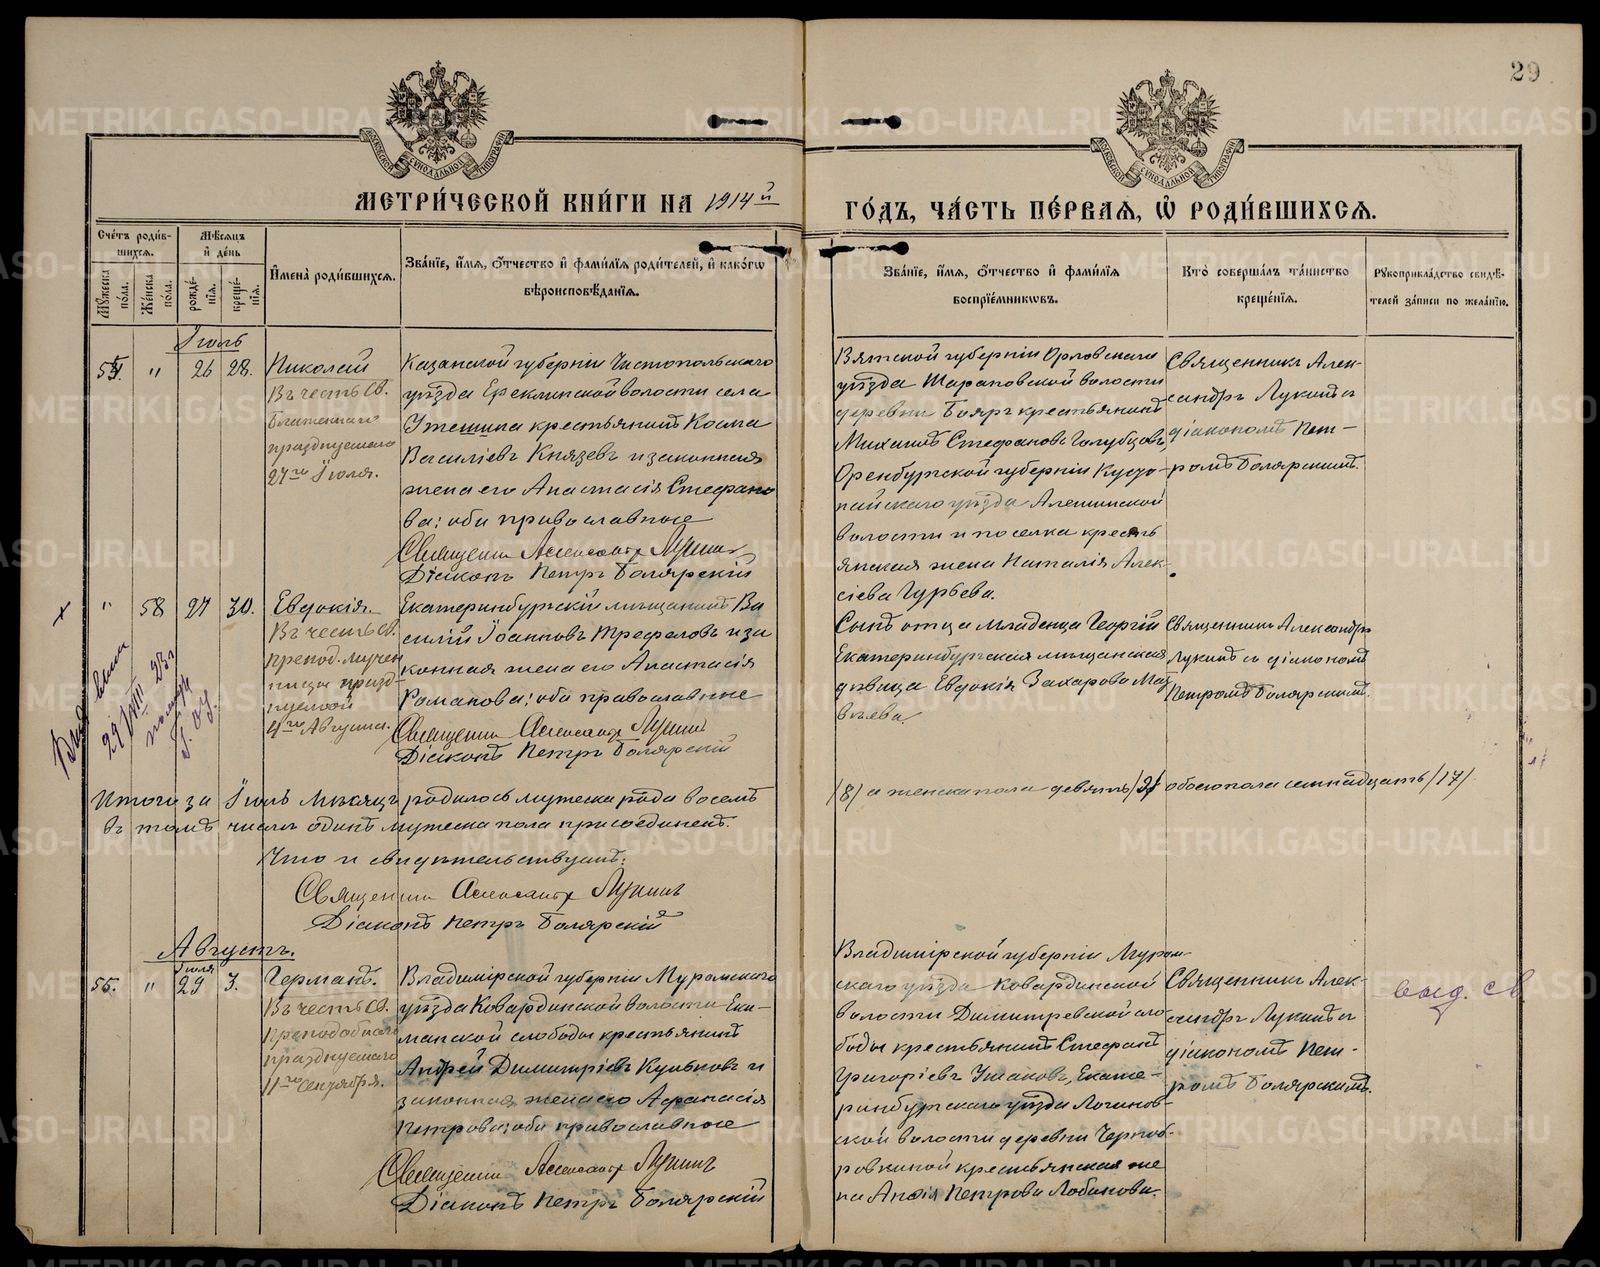 29
МОСКОВСКОЙ СѴНОДАЛЬНОЙ ТИПОГРАФІИ
МОСКОВСКОЙ СѴНОДАЛЬНОЙ ТИПОГРАФІИ
МЕТРИ́ЧЕСКОЙ КНИ́ГИ НА 1914й
ГО́ДЪ, ЧА́СТЬ ПЕ́РВАЯ, Ѡ РОДИ́ВШИХСЯ.
Сче́тъ роди́в-
шихся.
Мужеска по́ла.
Же́нска по́ла.
Мѣ́сяцъ
и де́нь
рожде́-
нїя.
креще́-
нїя.
Имена̀ роди́вшихся.
Зва́нїе, и́мя, о́тчество и фами́лїя роди́телей, и како́гѡ
вѣроисповѣ́данїя.
Зва́нїе, и́мя, о́тчество и фами́лїя
воспрїе́мникѡвъ.
Кто̀ соверша́лъ та́инство
креще́нїя.
Рукоприкла́дство свидѣ́-
телей за́писи по жела́нїю.
Іюль
54. " 26 28.
Николай
Въ честь Св.
Блаженнаго
празднуемаго
27го Іюля.
Казанской губерніи Чистопольскаго
уѣзда Ереклинской волости села
крестьянинъ Косма
Василіевъ Князевъ и законная
жена его Анастасія Стефано
ва; оби православное
Священник Александр Лукин
Діаконъ Петръ Болярскій
Вятской губерніи Орловскаго
уѣзда Шараповской волости
деревни Бояръ крестьянинъ
Михаилъ Стефановъ Голубцовъ,
Оренбургской губерніи Куста-
найскаго уѣзда Алешинской
волости и поселка кресть
янская жена Наталія Алек-
сіева Гурьева.
Священникъ Алек-
сандръ Лукинъ съ
діакономъ Пет-
ромъ Болярскимъ.
" 58 27 30.
Евдокія.
Въ честь Св.
препод. мучен
ницы празд-
нуемой
4го Августа.
Екатеринбургскій мѣщанинъ Ва
силій Іоанновъ Трефеловъ и за
конная жена его Анастасія
Романова; оби православные
Священник Александр Лукин
Діаконъ Петръ Болярскій
Сынъ отца младенца Георгій
Екатеринбургская мѣщанская
дѣвица Евдокія Захарова Мат
вѣева.
Священникъ Александръ
Лукинъ съ діакономъ
Петромъ Болярскимъ.
Итого за Іюль мѣсяцъ родилось мужеска рода восемь
/8/ а женска пола девять /9/ обоего пола семнадцать /17/.
въ томъ числѣ одинъ мужеска пола присоединенъ.
Что и свидѣтельствуютъ:
Священник Александр Лукинъ
Діаконъ Петръ Болярскій
Августъ.
Іюля
55. " 29 3.
Германъ.
Въ честь Св.
Преподобнаго
празднуемаго
11го Сентября.
Владимірской губерніи Муромскаго
уѣзда Ковардинской волости
слободы крестьянинъ
Андрей Димитріевъ Кулѣковъ и
законная жена его Афанасія
Петрова; оби православное
Священник Александр Лукинъ
Діаконъ Петръ Болярскій
Владимірской губерніи Муром
скаго уѣзда Ковардинской
волости Димитревской сло
боды крестьянинъ Стефанъ
Григоріевъ Ушаковъ, Екате-
ринбургскаго уѣзда Логинов-
ской волости деревни
крестьянская же
на Петрова Лобанова.
Священникъ Алек-
сандръ Лукинъ съ
діакономъ Пет-
ромъ Болярскимъ.
выд. св